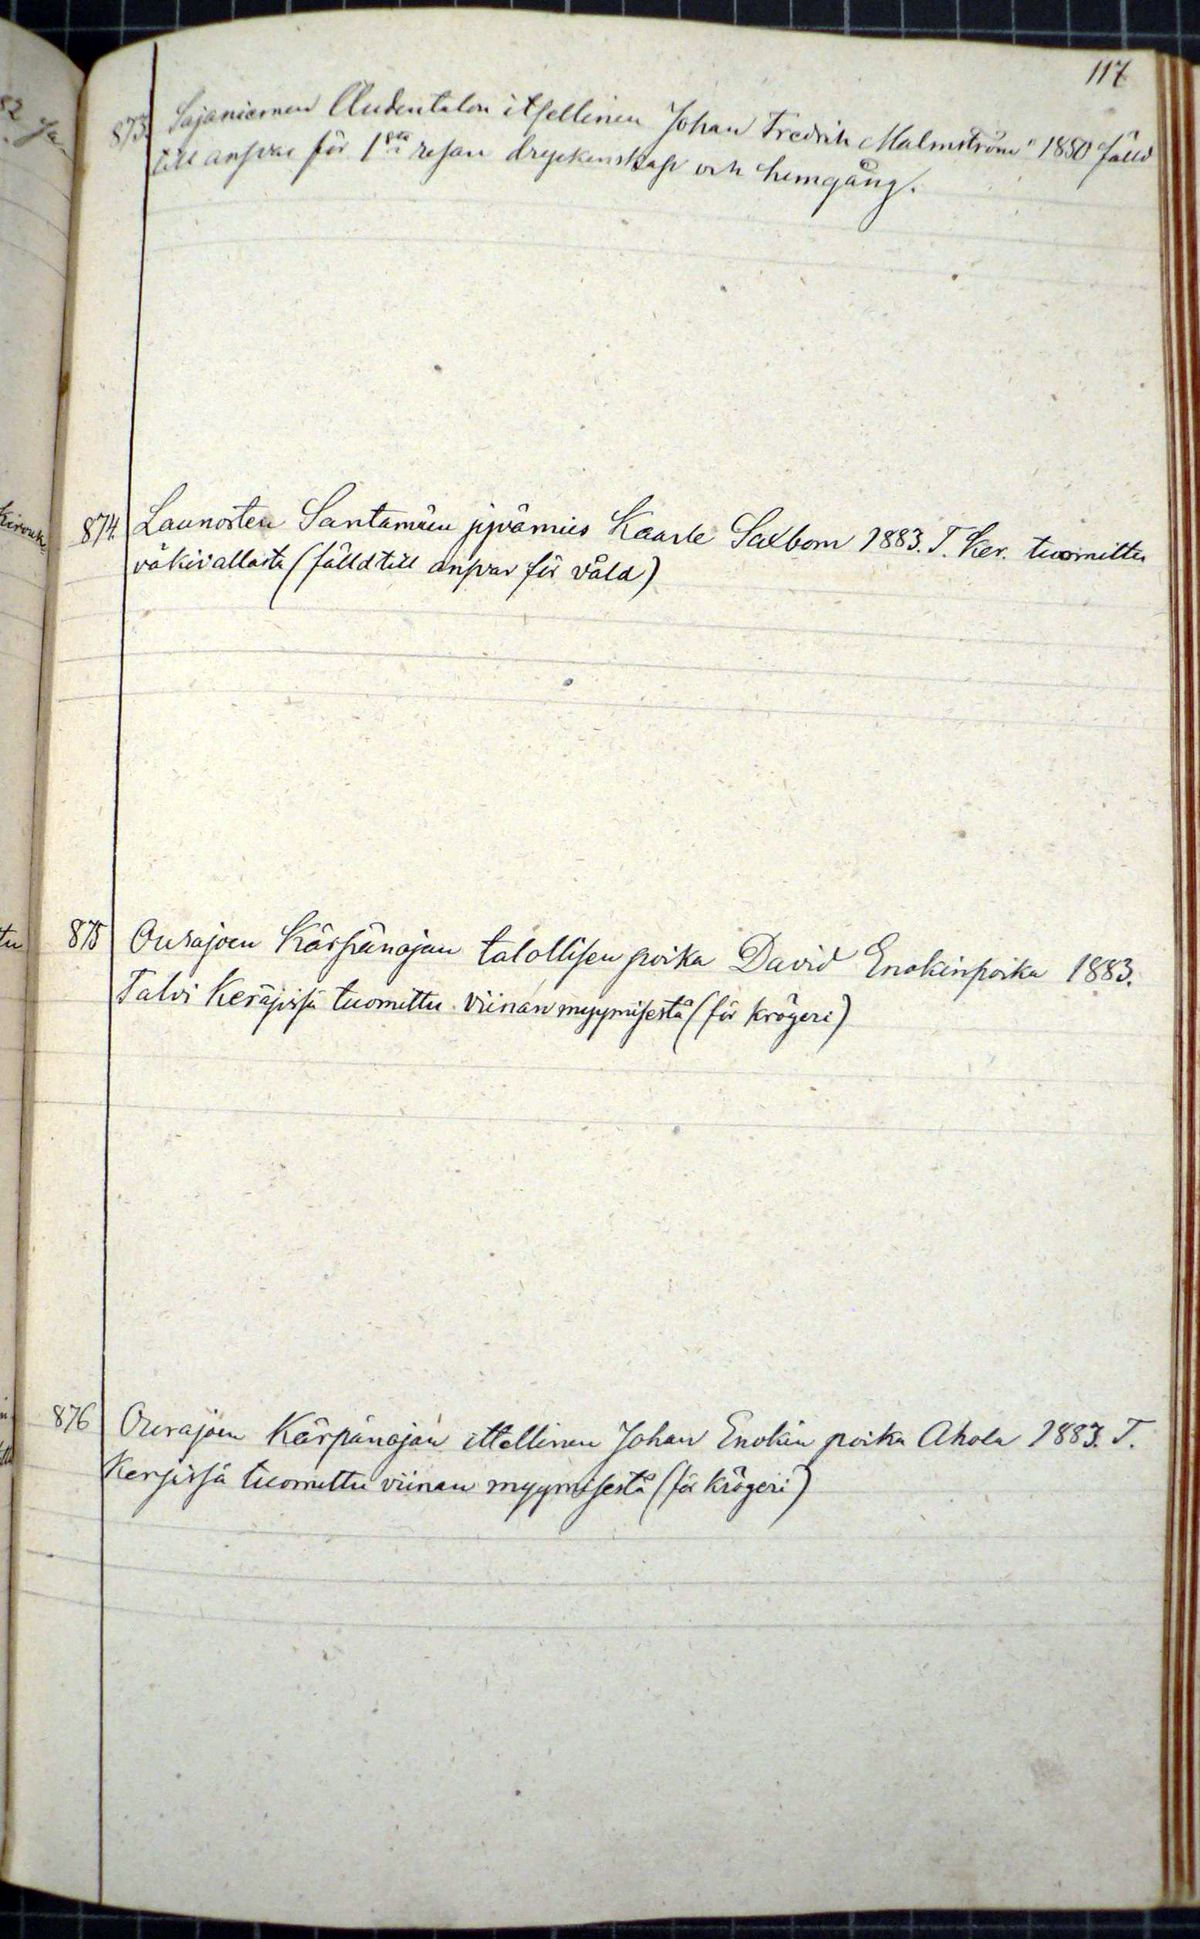 117
873. Sajaniemen Uudentalon itsellinen Johan Fredrik Malmström 1880 fälld
till ansvar för 1sta resan dryckenskap och hemgång.
874. Launosten Santamäen jyvämies Kaarle Saxbom 1883. T. Ker. tuomittu
väkivallasta (fälld till ansvar för våld)
875 Ourajoen Kärpänojan talollisen poika David Enokinpoika 1883.
Talvi Keräjissä tuomittu viinan myymisestä (för krögeri)
876 Ourajoen Kärpänojan ittellinen Johan Enokin poika Ahola 1883. T.
Kerjissä tuomittu viinan myymisestä (för krögeri)